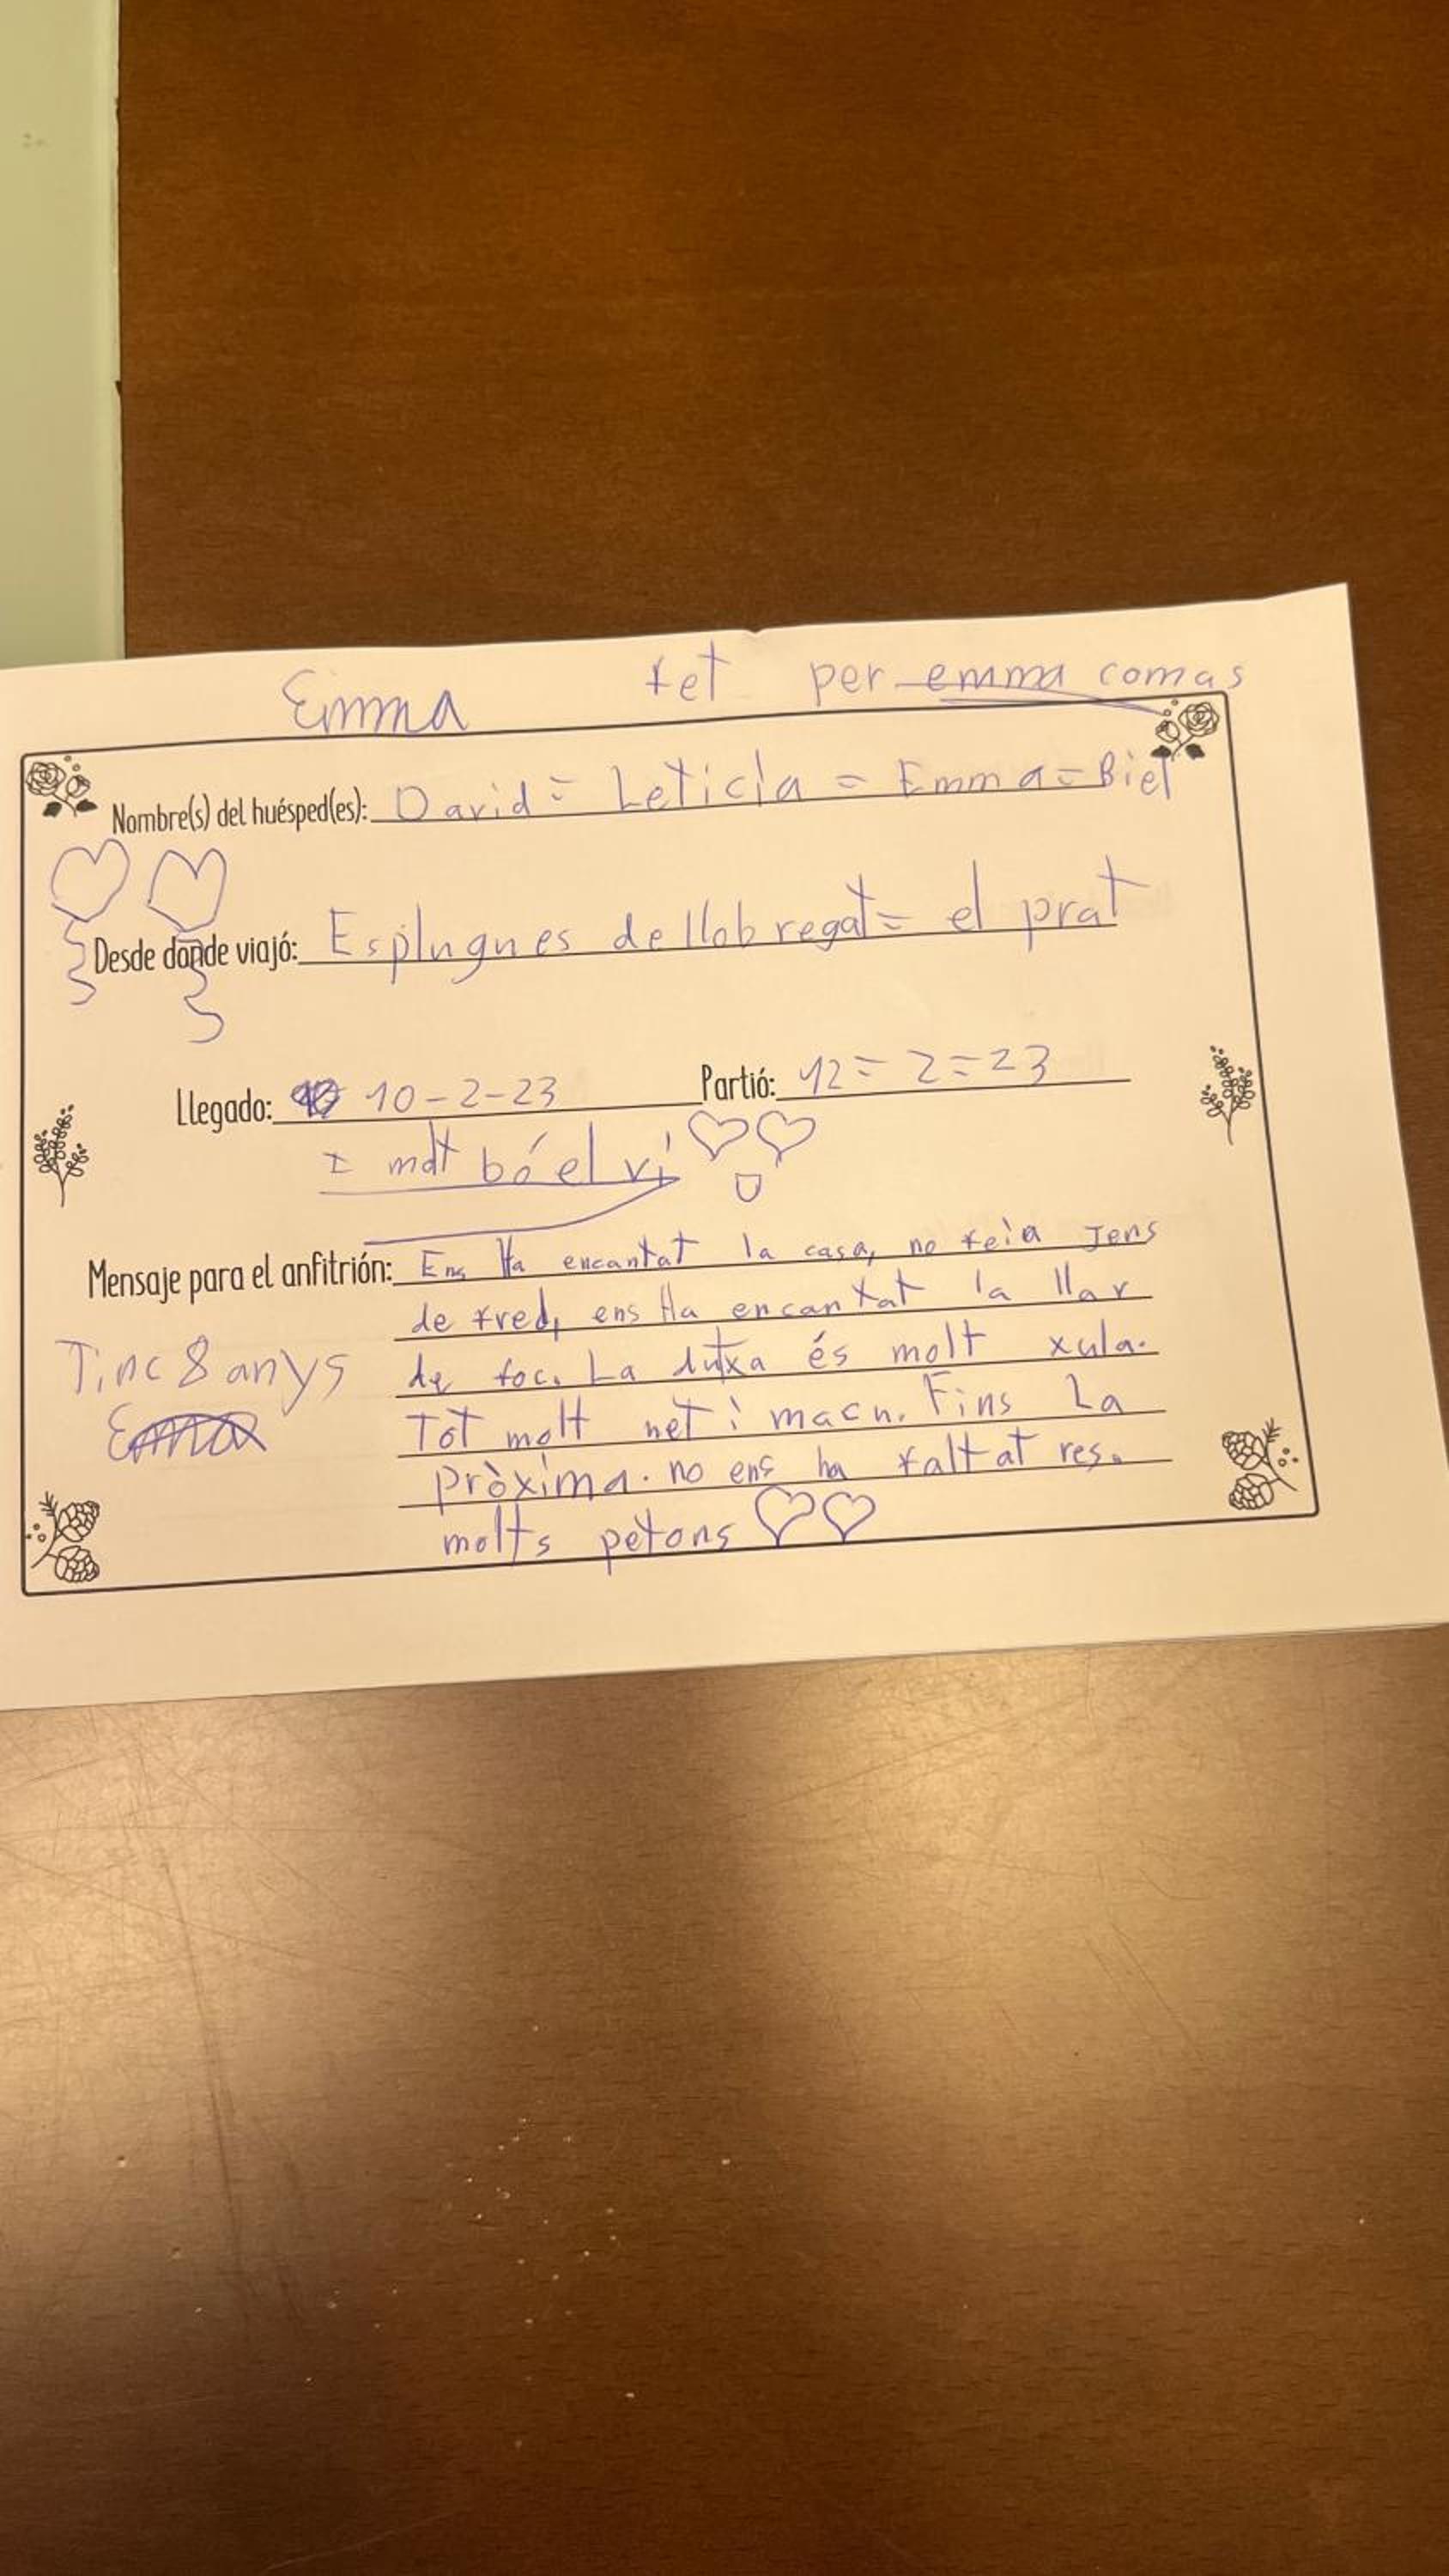 Emma fet per emma comas
Nombre(s) del huésped(es): David = Leticia = Emma = Biel
Desde donde viajó: Esplugues de llobregat = el prat
Llegado: 10-2-23 Partió: 12=2=23
I molt bó el vi
Mensaje para el anfitrión: Ens Ha encantat la casa, no feia Jens
de fred, ens Ha encantat la llar
de foc. La dutxa és molt xula.
Tot molt net i macu. Fins La
pròxima. no ens ha faltat res.
molts petons
Tinc 8 anys
Emma